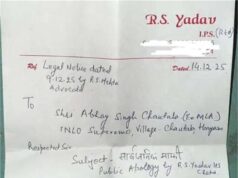 R.S. Yadav
I.P.S. (Rtd)
Ref Legal Notice dated Dated 14.12.25
9.12.25 by R.S. Mehta
Advocate
To
Shri Abhay Singh Chautala (Ex MLA)
INLD Supremo, Village Chautala, Haryana
Respected Sir
Subject - सार्वजनिक माफी
Public Apology by R.S. Yadav IPS